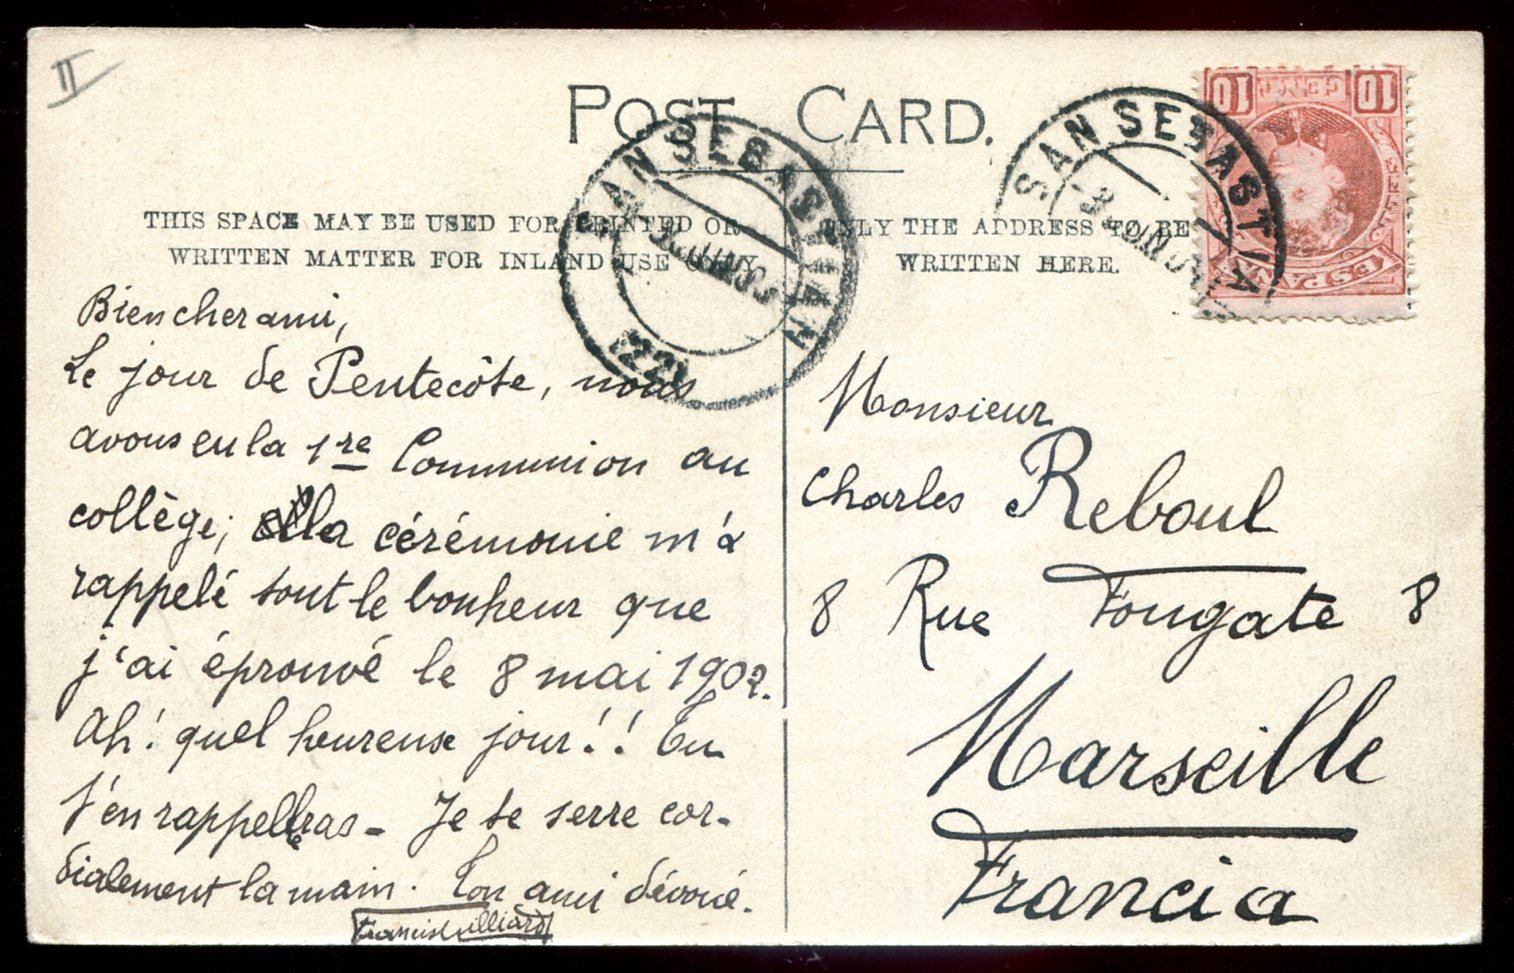 II
POST CARD.
THIS SPACE MAY BE USED FOR PRINTED OR
WRITTEN MATTER FOR INLAND USE ONLY.
ONLY THE ADDRESS TO BE
WRITTEN HERE.
SAN SEBASTIAN
SAN SEBASTIAN
10 CENTS 10
ESPAÑA
Bien cher ami,
Le jour de Pentecôte, nous
avons eu la 1re Communion au
collège; la cérémonie m'a
rappelé tout le bonheur que
j'ai éprouvé le 8 mai 1902.
Ah! quel heureuse jour!! Tu
t'en rappelleras - Je te serre cor-
dialement la main. Ton ami dévoué.
Monsieur
Charles Reboul
8 Rue Fougate 8
Marseille
Francia